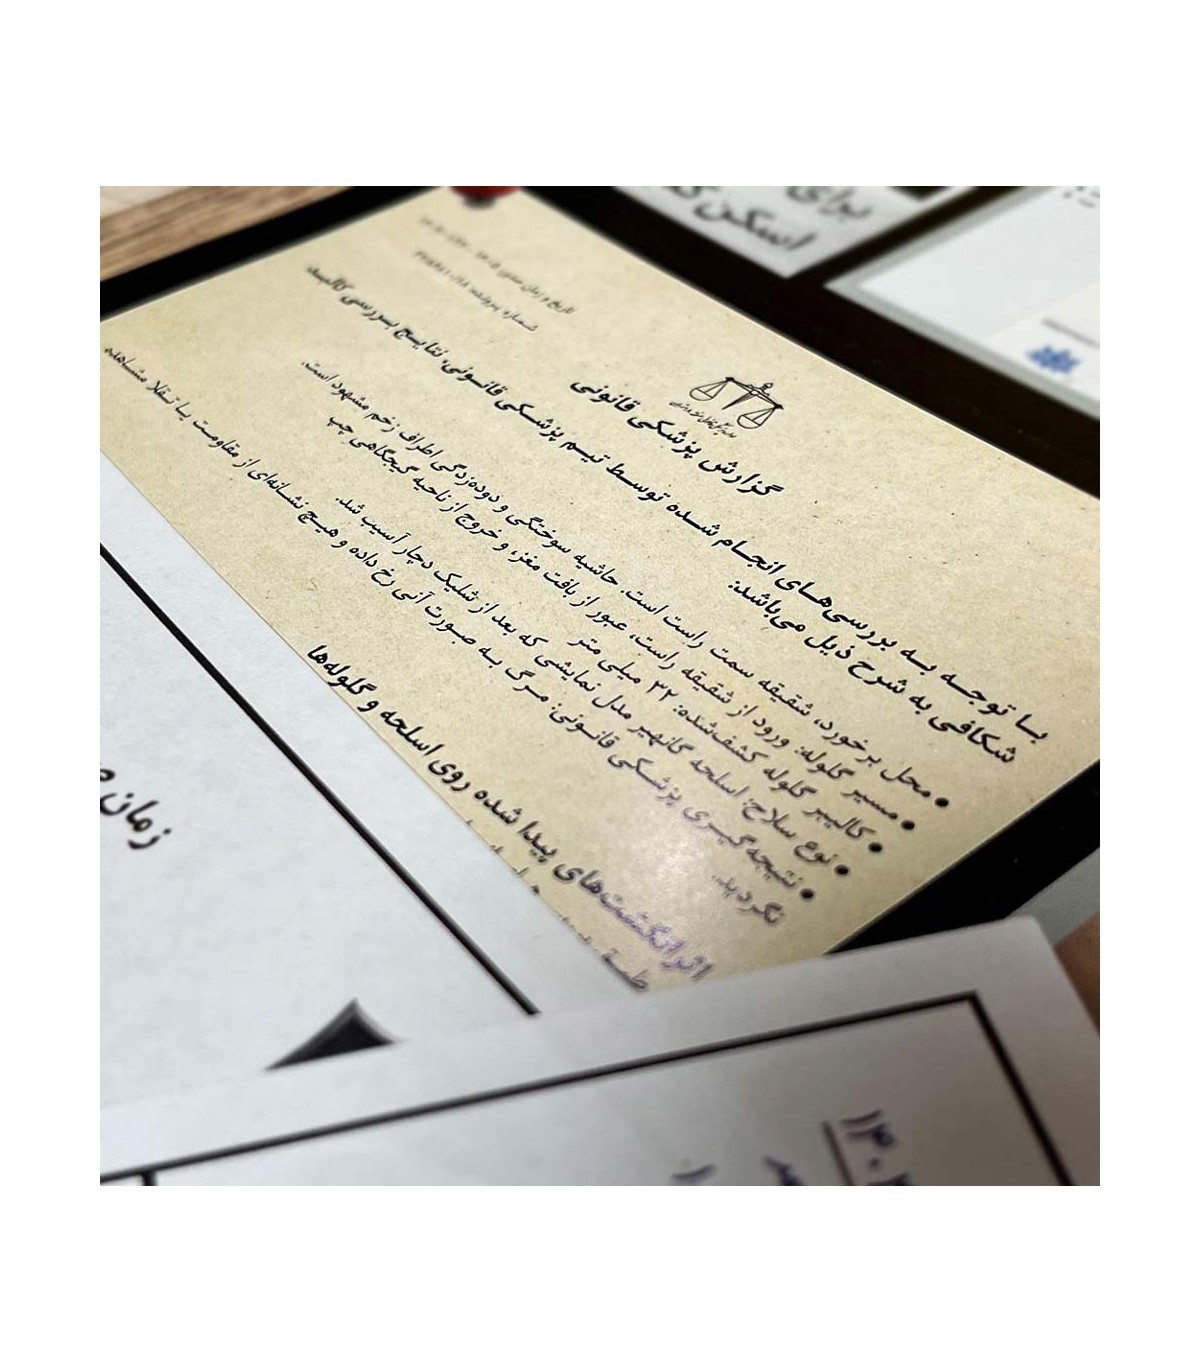 برای
اسکن
گزارش پزشکی قانونی
بـا توجـه بـه بررسی‌هـای انجـام شـده توسـط تیـم پزشـکی قانـونی، نتایـج بـررسی کالبـد
شکافی به شرح ذیل می‌باشد:
• محل برخورد، شقیقه سمت راست است. حاشیه سوختگی و دوده‌زدگی اطراف زخم مشهود است.
• مسیر گلوله: ورود از شقیقه راست، عبور از بافت مغز، و خروج از ناحیه گیجگاهی چپ
• کالیبر گلوله کشف‌شده: ۲۲ میلی متر
• نوع سلاح: اسلحه گانهیر مدل نمایشی که بعد از شلیک دچار آسیب شد.
• نتیجه‌گیـری پزشـکی قانـونی: مـرگ بـه صـورت آنـی رخ داده و هیـچ نشـانه‌ای از مقاومـت یـا تـقلا مشـاهده
نگردید.
اثرانگشت‌های پیدا شده روی اسلحه و گلوله‌ها
زمان